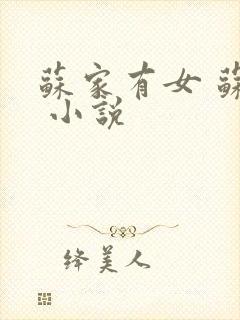 蘇家有女 蘇
小說
絳美人